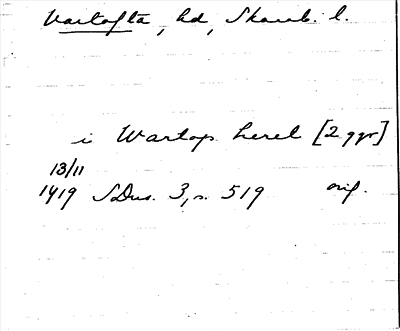 Vartofta, hd, Skarab. l.
i Wartop heret [2 ggr]
13/11
1419 SDns. 3, s. 519 orig.